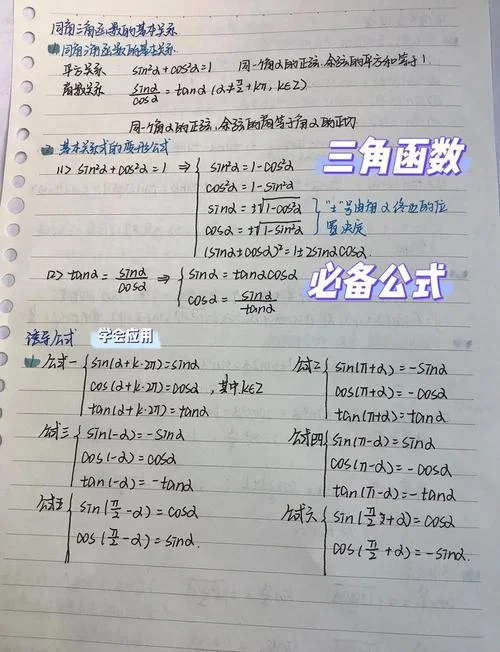 同角三角函数的基本关系
1 同角三角函数的基本关系.
平方关系 sin²α+cos²α=1 同一个角α的正弦、余弦的平方和等于1
商数关系 sinα/cosα=tanα(α≠π/2+kπ, k∈Z)
同一个角α的正弦、余弦的商等于角α的正切
2 基本关系式的变形公式
三角函数
(1) sin²α+cos²α=1 ⇒ { sin²α=1-cos²α
cos²α=1-sin²α
sinα=±√1-cos²α
cosα=±√1-sin²α
} "±"号由角α终边的位
置决定
(sinα±cosα)²=1±2sinαcosα
(2) tanα=sinα/cosα ⇒ { sinα=tanαcosα
cosα=sinα/tanα
必备公式
诱导公式 学会应用
1 公式一 { sin(α+k·2π)=sinα
cos(α+k·2π)=cosα, 其中k∈Z
tan(α+k·2π)=tanα
公式二 { sin(π+α)=-sinα
cos(π+α)=-cosα
tan(π+α)=tanα
公式三 { sin(-α)=-sinα
cos(-α)=cosα
tan(-α)=-tanα
公式四 { sin(π-α)=sinα
cos(π-α)=-cosα
tan(π-α)=-tanα
公式五 { sin(π/2-α)=cosα
cos(π/2-α)=sinα.
公式六 { sin(π/2+α)=cosα
cos(π/2+α)=-sinα.